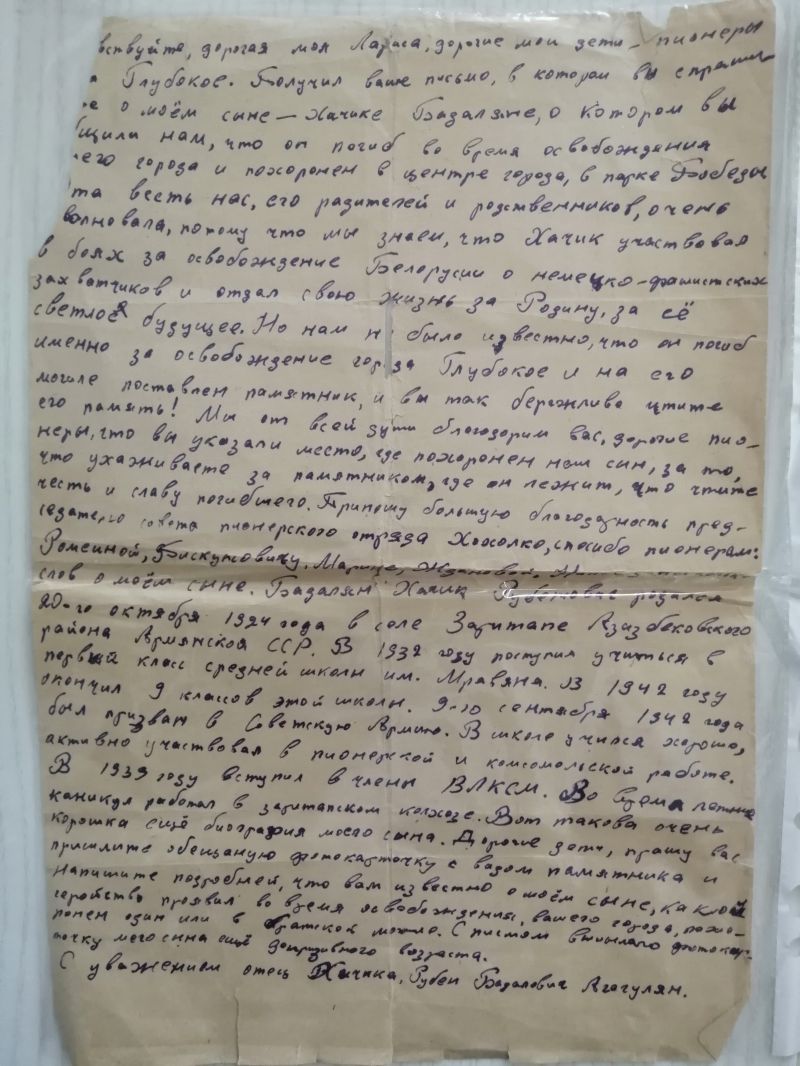 вствуйте, дорогая моя Лариса, дорогие мои дети – пионеры
Глубокое. Получил ваше письмо, в котором вы спраши
о моём сыне – Хачике Бадаляне, о котором вы
бщили нам, что он погиб во время освобождения
его города и похоронен в центре города, в парке Победы
та весть нас, его радителей и родственников, очень
волновала, потому что мы знаем, что Хачик участвовал
в боях за освобождение Белорусии о немецко-фашистских
захватчиков и отдал свою жизнь за Родину, за её
светлое будущее. Но нам н было известно, что он погиб
именно за освобождение города Глубокое и на его
могиле поставлен памятник, и вы так бережливо чтите
его память! Мы от всей души благодорим вас, дорогие пио-
неры, что вы указали место, где похоронен наш сын, за то,
что ухаживаете за памятником, где он лежит, что чтите
честь и славу погибшего. Приношу большую благодарность пред-
седателю совета пионерского отряда Хохолко, спасибо пионерам:
Ромсиной, Бискуповичу, Марине, Ждановой,
слов о моём сыне. Бадалян Хачик Рубенович родился
20-го октября 1924 года в селе Заритапе Азизбековского
района Армянской ССР. В 1932 году поступил учиться в
первый класс средней школы им. Мравяна. В 1942 году
окончил 9 классов этой школы. 9-го сентября 1942 года
был призван в Советскую Армию. В школе учился хорошо,
активно участвовал в пионерской и комсомольской работе.
В 1939 году вступил в члены ВЛКСМ. Во время летние
каникул работал в заритапском колхозе. Вот такова очень
корошка ещё биография моего сына. Дорогие дети, прашу вас
пришлите обещаную фотокарточку с видом памятника и
напишите подробней, что вам известно о моём сыне, какой
геройство проявил во время освобождения, вашего города, похо-
ронен один или в братской могиле. С писмом высылаю фотокар-
точку моего сина ещё допризивного возраста.
С уважением отец Хачика, Рубен Бадалович Агагулян.